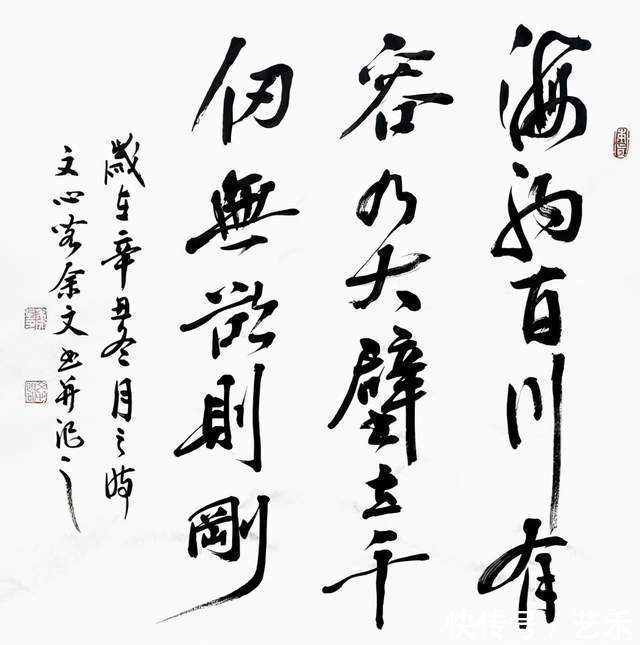 海納百川有
容乃大壁立千
仞無欲則剛
歲在辛丑冬月之時
文心 余文书并记之
快传号 / 艺禾